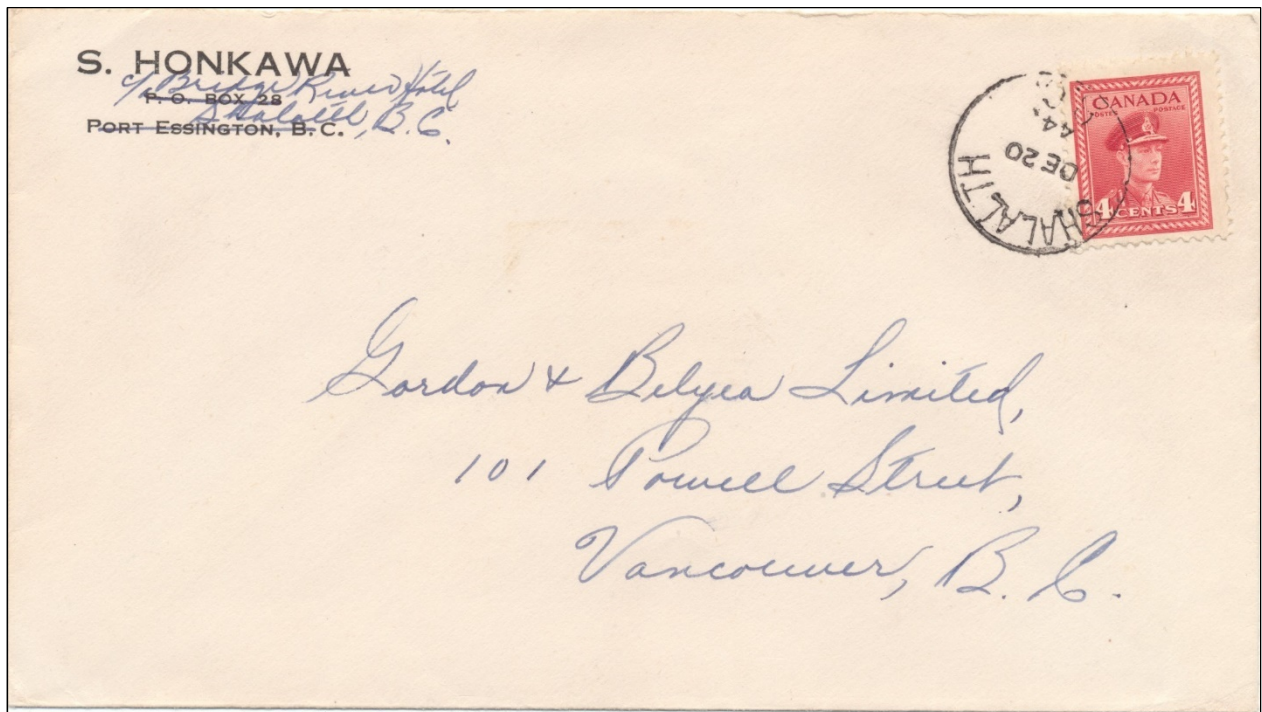 S. HONKAWA
c/o Bridge River Hotel
P. O. BOX 28
Shalalth, B.C.
PORT ESSINGTON, B.C.
CANADA
POSTES POSTAGE
4 CENTS 4
SHALALTH
DE 20
44
Gordon & Belyea Limited,
101 Powell Street,
Vancouver, B.C.